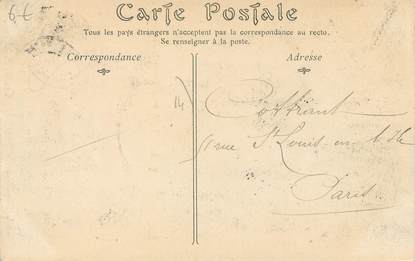 6€
Carte Postale
Tous les pays étrangers n'acceptent pas la correspondance au recto.
Se renseigner à la poste.
Correspondance
Adresse
14
rue St Louis en l'Ile
Paris